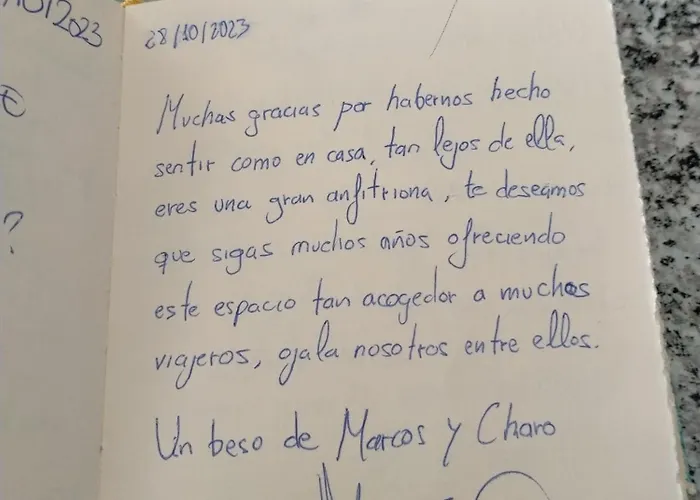 10/2023
28/10/2023
Muchas gracias por habernos hecho
sentir como en casa, tan lejos de ella,
eres una gran anfitriona, te deseamos
que sigas muchos años ofreciendo
este espacio tan acogedor a muchos
viajeros, ojala nosotros entre ellos.
Un beso de Marcos y Charo
?